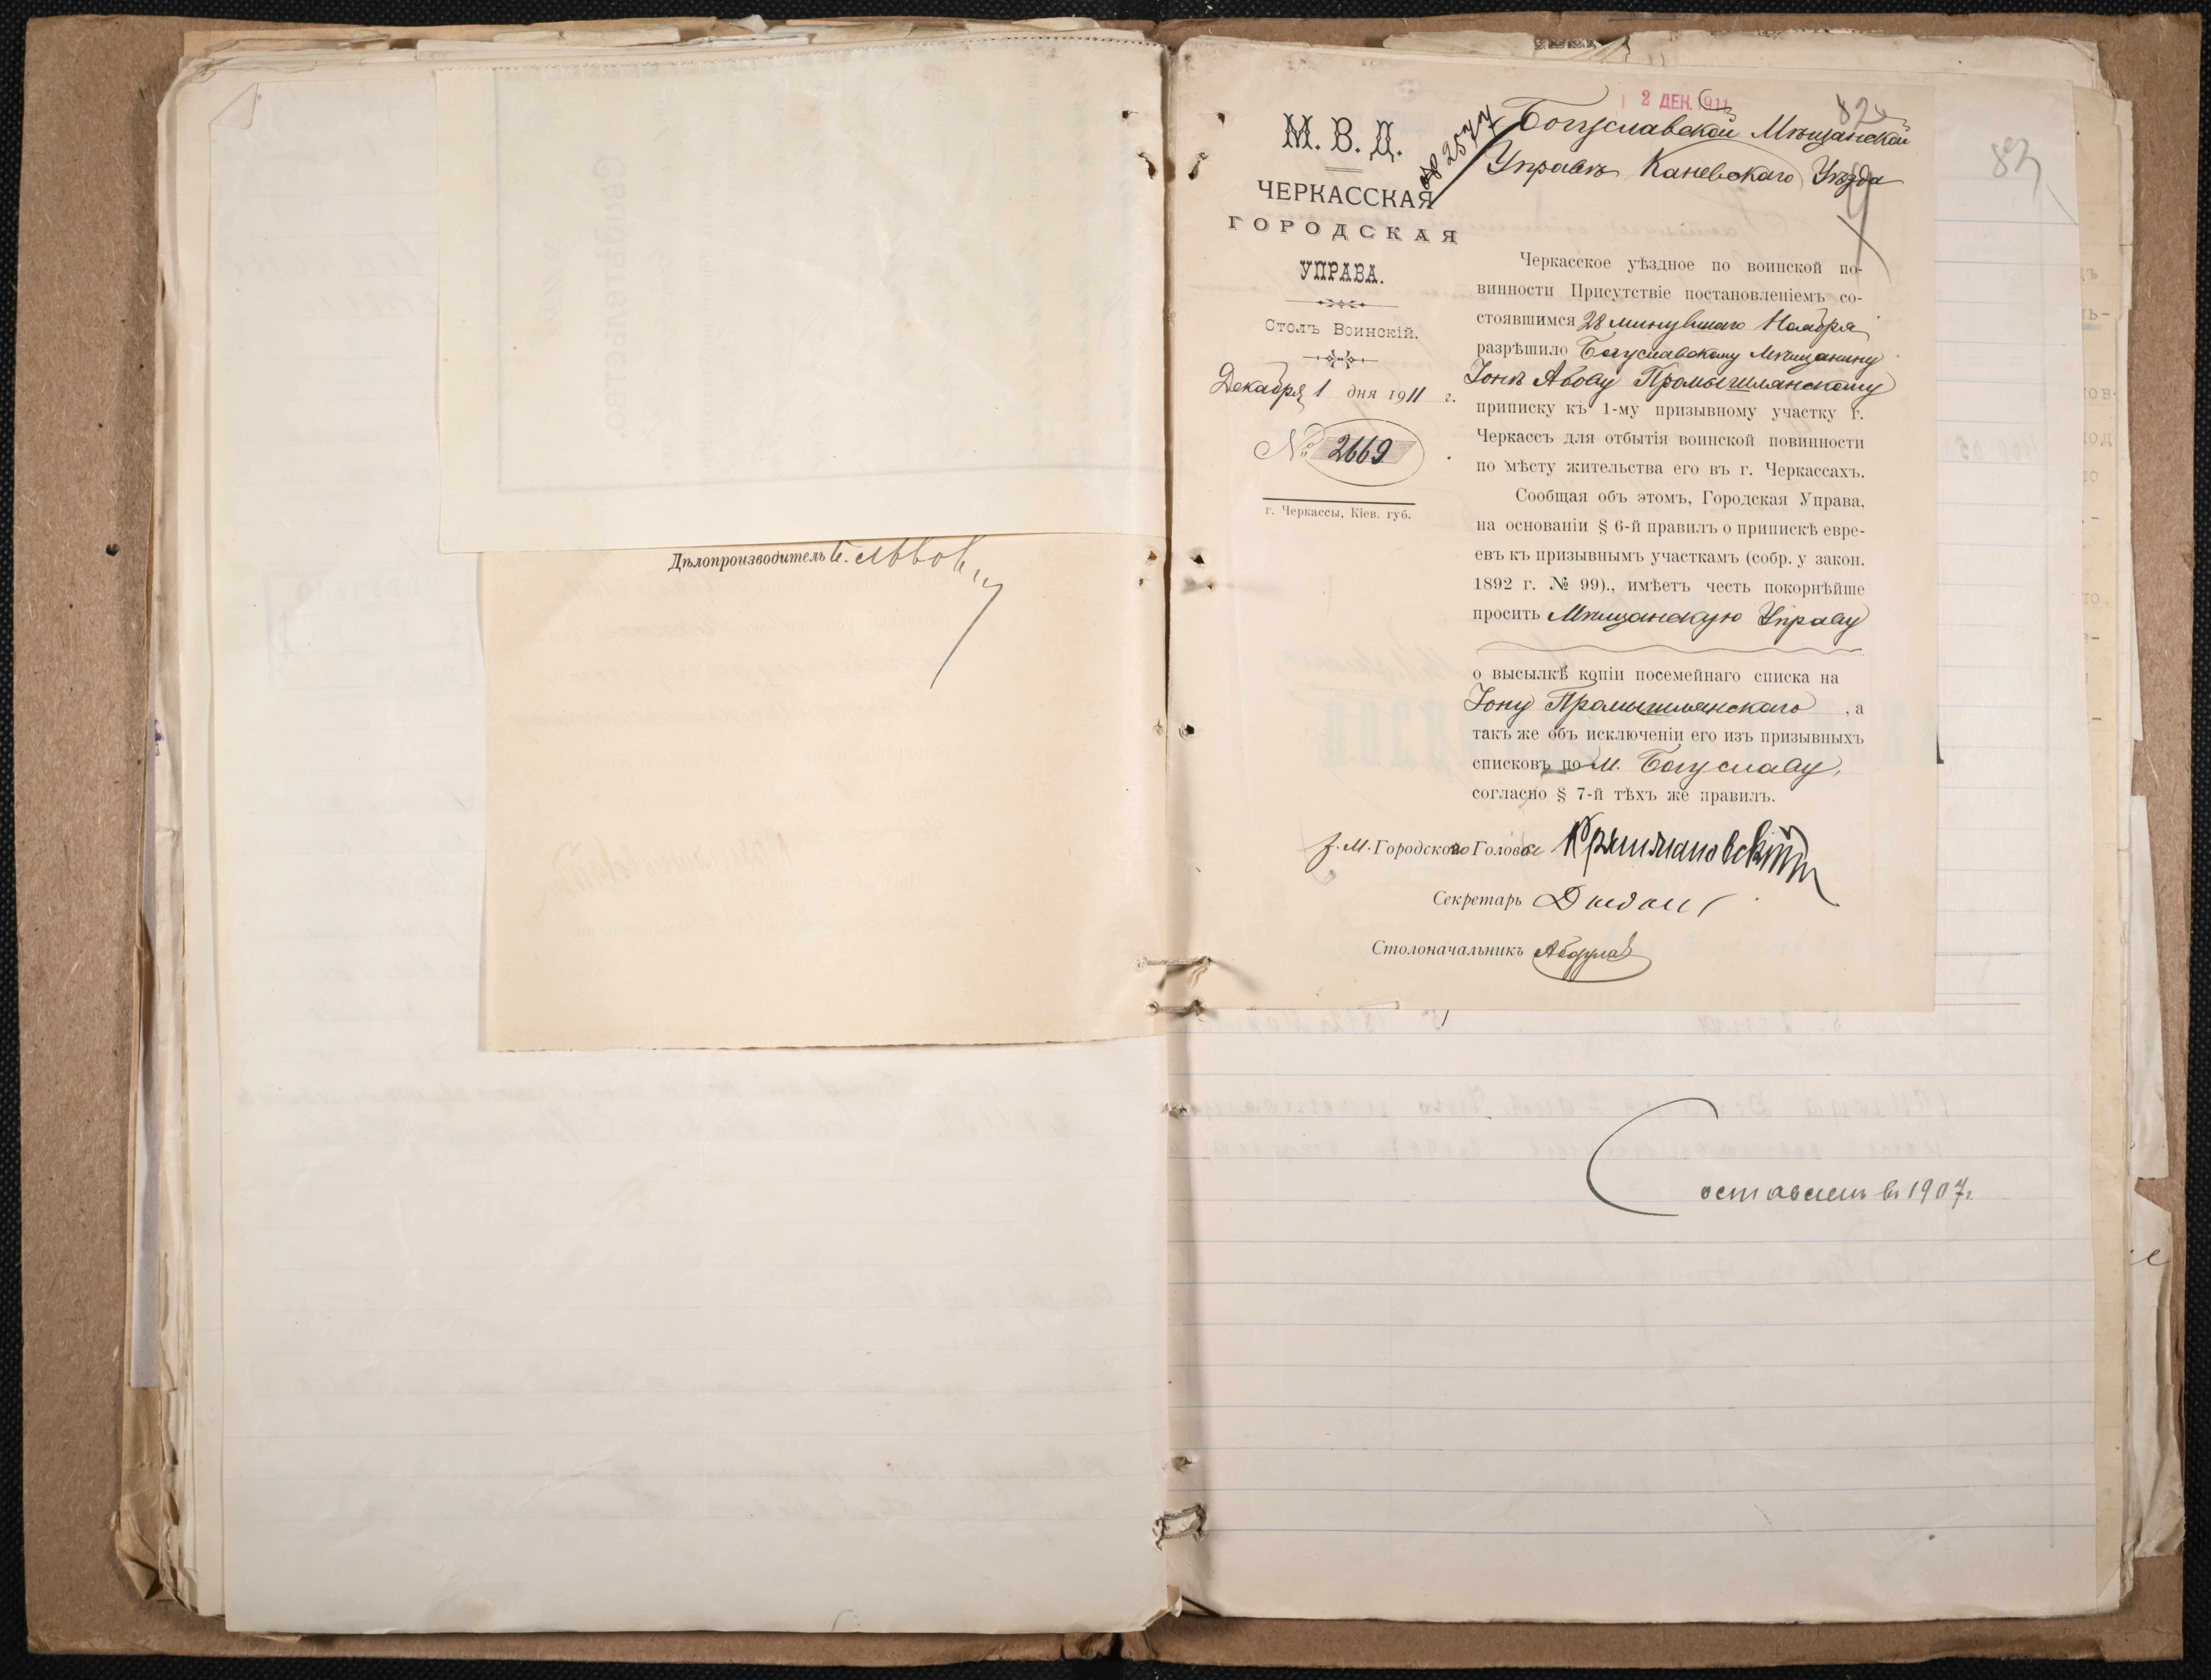 Дѣлопроизводитель
2 ДЕК. 1911
82
83
М. В. Д.
ЧЕРКАССКАЯ
ГОРОДСКАЯ
УПРАВА.
Столъ Воинскій.
Декабря 1 дня 1911 г.
№ 2669
г. Черкассы, Кіев. губ.
2577
Богуславской Мѣщанской
Управѣ Каневскаго Уѣзда
Черкасское уѣздное по воинской по-
винности Присутствіе постановленіемъ со-
стоявшимся 28 минувшаго Ноября
разрѣшило Богуславскому Мѣщанину
Іонѣ Абову Промышлянскому
приписку къ 1-му призывному участку г.
Черкассъ для отбытія воинской повинности
по мѣсту жительства его въ г. Черкассахъ.
Сообщая объ этомъ, Городская Управа,
на основаніи § 6-й правилъ о припискѣ евре-
евъ къ призывнымъ участкамъ (собр. у закон.
1892 г. № 99)., имѣетъ честь покорнѣйше
просить Мѣщанскую Управу
о высылкѣ копіи посемейнаго списка на
Іону Промышлянскаго , а
такъ же объ исключеніи его изъ призывныхъ
списковъ по м. Богуславу,
согласно § 7-й тѣхъ же правилъ.
з. М. Городского Головы
Секретарь
Столоначальникъ
Составленъ въ 1907 г.